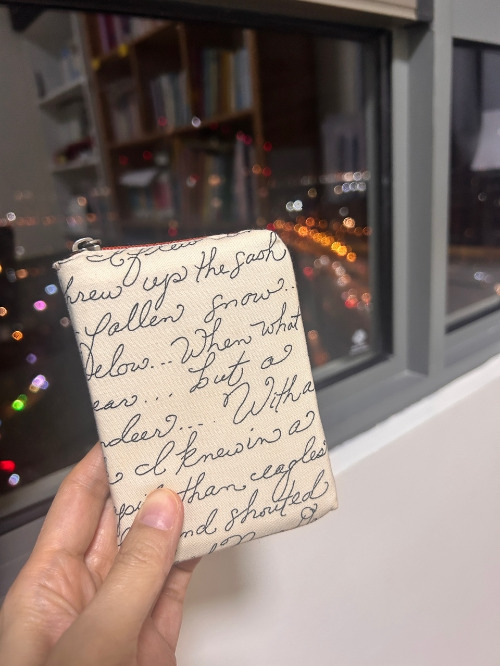 I flew
hrew up the sash
fallen snow..
below... When what
ear... but a
ndeer.... With a
I knew in a
than eagles
nd shouted